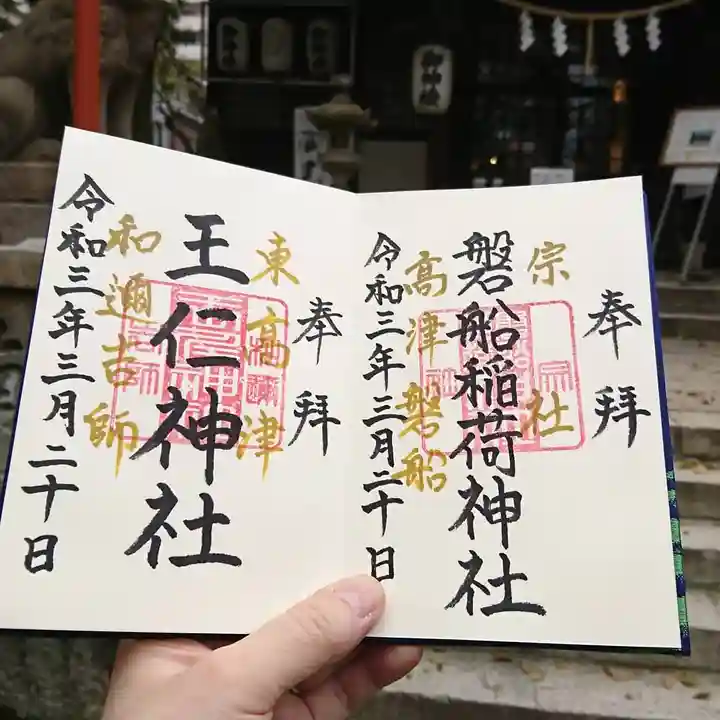 奉拝
宗社
磐船稲荷神社
高津磐船
令和三年三月二十日
奉拝
東高津
王仁神社
和邇吉師
令和三年三月二十日